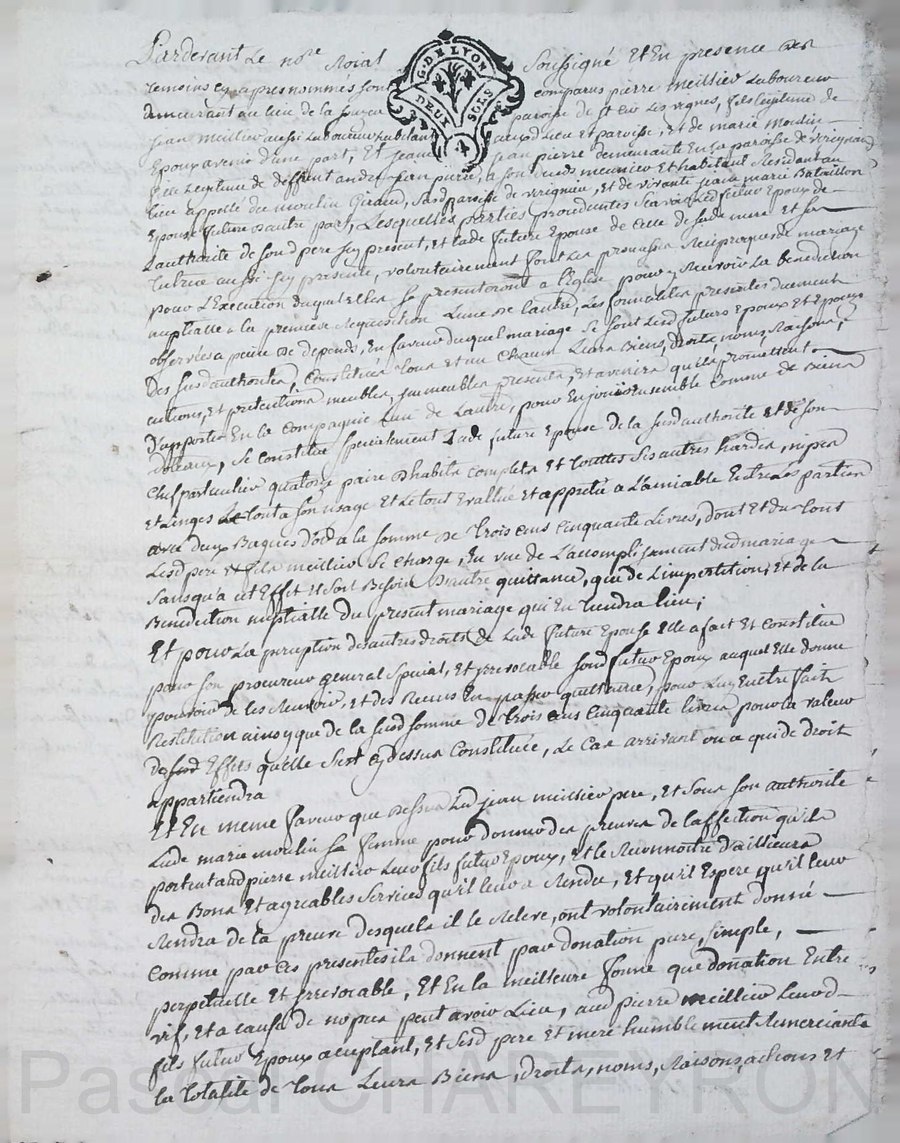 Pardevant Le no.re Roial Soussigné Et En presence des
temoins cy apres nommés sont comparus pierre meillier Laboureur
demeurant au lieu de la paroisse de st Les vignes, fils Legitime de
jean meillier aussi Laboureur habitant auxd Lieu et paroisse, et de marie moulin
Epoux avenir d'une part, Et jeane jean pierre demeurante En la paroisse de verignieu
fille Legitime de deffunt andré jean pierre, a son decéds meunier et habitant Residant au
lieu appellé du moulin Giraud, susd paroisse de verignieu, et de vivante jeane marie Bataillon
Epouse future d'autre part, Lesquelles parties procedantes sçavoir led futur Epoux de
L'authorité de sond pere icy present, et lade future Epouse de celle de sade mere et sa
tutrice aussi icy presente, volontairement font Les promesses Reciproques de mariage
pour L'Execution duquel Elles se presenteront a l'Eglise pour y Recevoir La benediction
nuptialle a la premiere Requisition L'une de L'autre, Les formalités prescrites duement
observées a peine de depends, En faveur duquel mariage se sont Lesd futurs Epoux et Epouse
Des susd authorités, Constitués tous et un chacun Leurs Biens, droits, noms, Raisons,
actions, et pretentions meubles, immeubles presents, et avenirs qu'ils promettent
d'apporter En la Compagnie L'un de Lautre, pour En jouir Ensemble comme de Biens
dotaux, se constitue specialement Lade future Epouse de la susd authorité et de son
chef particulier quatorze paire d'habits complets et touttes ses autres hardes, nipes
et Linges Le tout a son usage et Le tout Evallué et apprétié a L'amiable Entre Les parties
avec deux Bagues d'or a la somme de trois cens cinquante Livres, dont et du tout
Lesd pere et fils meillier se charge, En vue de L'accomplissement dud mariage
sans qu'a cet Effet il soit Besoin d'autre quittance, que de L'impertition, et de la
Benediction nuptialle du present mariage qui En tiendra lieu;
Et pour La perception des autres droits de Lade future Epouse Elle a fait et constitué
pour son procureur general special, et irrevocable sond futur Epoux auquel Elle donne
pouvoir de les Recevoir, et des Recus En passer quittance, pour Luy En être fait
Restitution ainsy que de la susd somme de trois cens cinquante livres pour la valeur
desd Effets qu'elle s'est cy dessus Constituée, Le cas arrivant ou a qui de droit
appartiendra
Et En meme faveur que dessus Led jean meillier pere, et sous son authorité
Lade marie moulin sa femme pour donner des preuves de l'affection qu'ils
portent aud pierre meillier Leur fils futur Epoux, et le Reconnoitre d'ailleurs
des Bons Et agreables Services qu'il leur a Rendu, Et qu'il Espere qu'il leur
Rendra de la preuve desquels il le Releve, ont volontairement donné
comme par ces presentes ils donnent par donation pure, simple,
perpetuelle Et irrevocable, Et En la meilleure forme que donation Entre
vif, et a cause de nopces peut avoir Lieu, aud pierre meillier Leurd
fils futur Epoux acceptant, et sesd pere et mere humblement Remerciants
la totalité de tous Leurs Biens, droits, noms, Raisons, actions et
G. DE LYON
DEUX SOLS
4
Pascal CHAREYRON